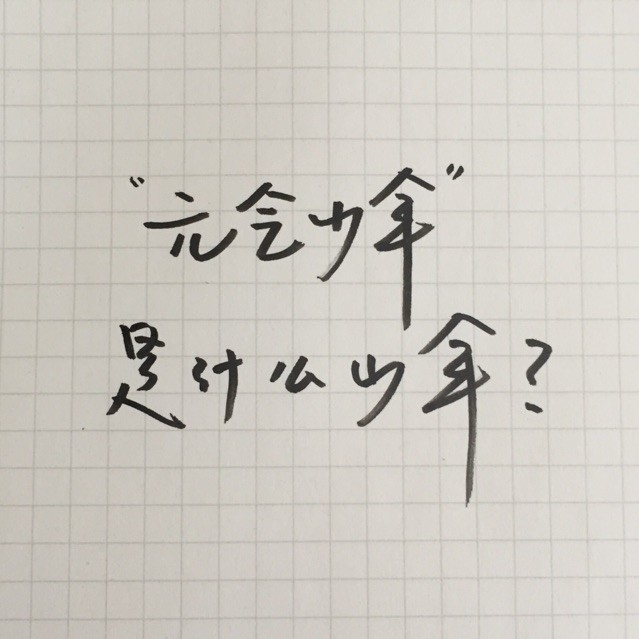 “元会少年”
是什么少年？